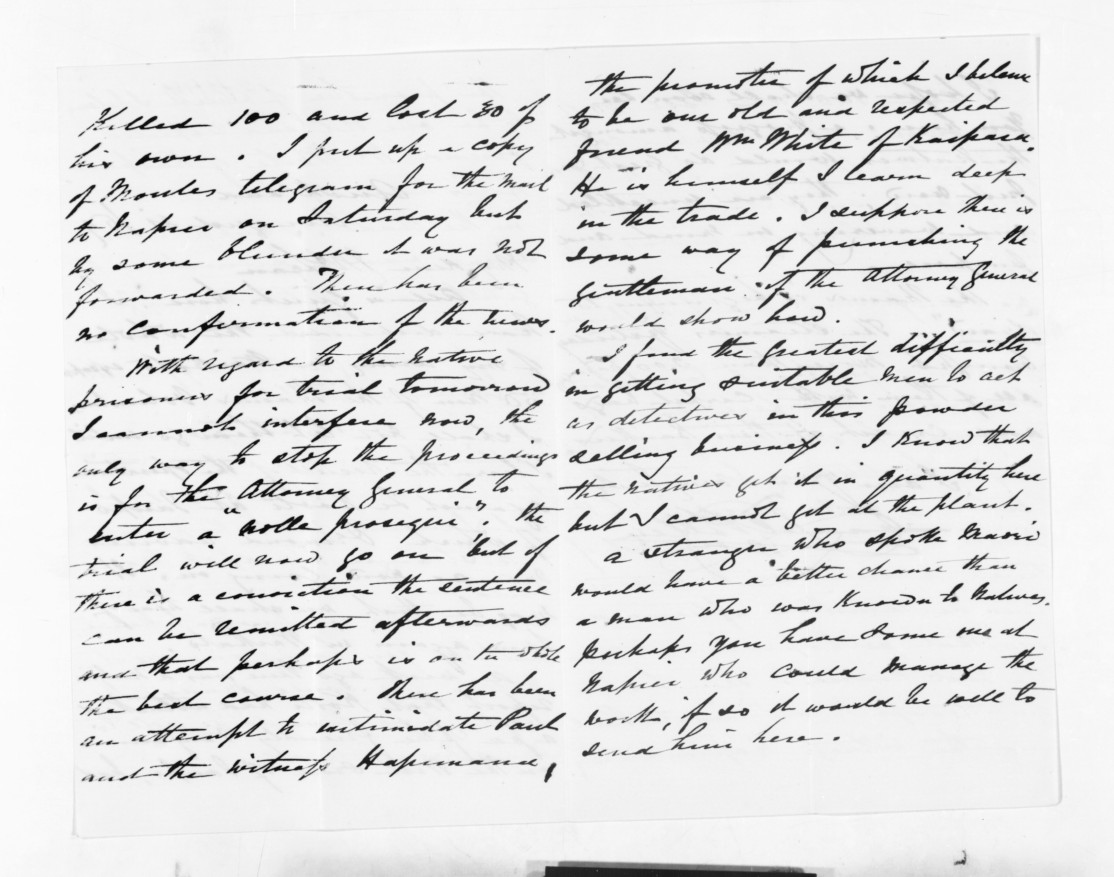 Killed 100 and lost 30 of
his own. I put up a copy
of Moules telegram for the Mail
to Napier on Saturday but
by some blunder it was not
forwarded. There has been
no confirmation of the news.
With regard to the Native
prisoners for trial tomorrow
I cannot interfere now, the
only way to stop the proceedings
is for the Attorney General to
enter a "nolle prosequi". The
trial will now go on but if
there is a conviction the sentence
can be remitted afterwards
and that perhaps is on the whole
the best course. There has been
an attempt to intimidate Paul
and the witness Hapimana,
the promoter of which I believe
to be our old and respected
friend Wm White of Kaipara.
He is himself I learn deep
in the trade. I suppose there is
some way of punishing the
gentleman if the Attorney General
would show how.
I find the greatest difficulty
in getting suitable men to act
as detectives in this powder
selling business. I know that
the natives get it in quantity here
but I cannot get at the plant.
A stranger who spoke Maori
would have a better chance than
a man who was known to Natives.
perhaps you have some one at
Napier who could manage the
work, if so it would be well to
send him here.